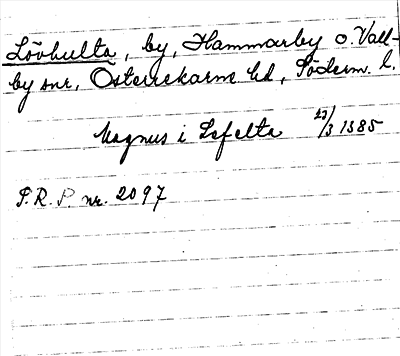 Lövhulta, by, Hammarby o. Vall-
by snr, Österrekarne hd, Söderm. l.
Magnus i Lefelta 23/3 1385
P.R.P nr. 2097